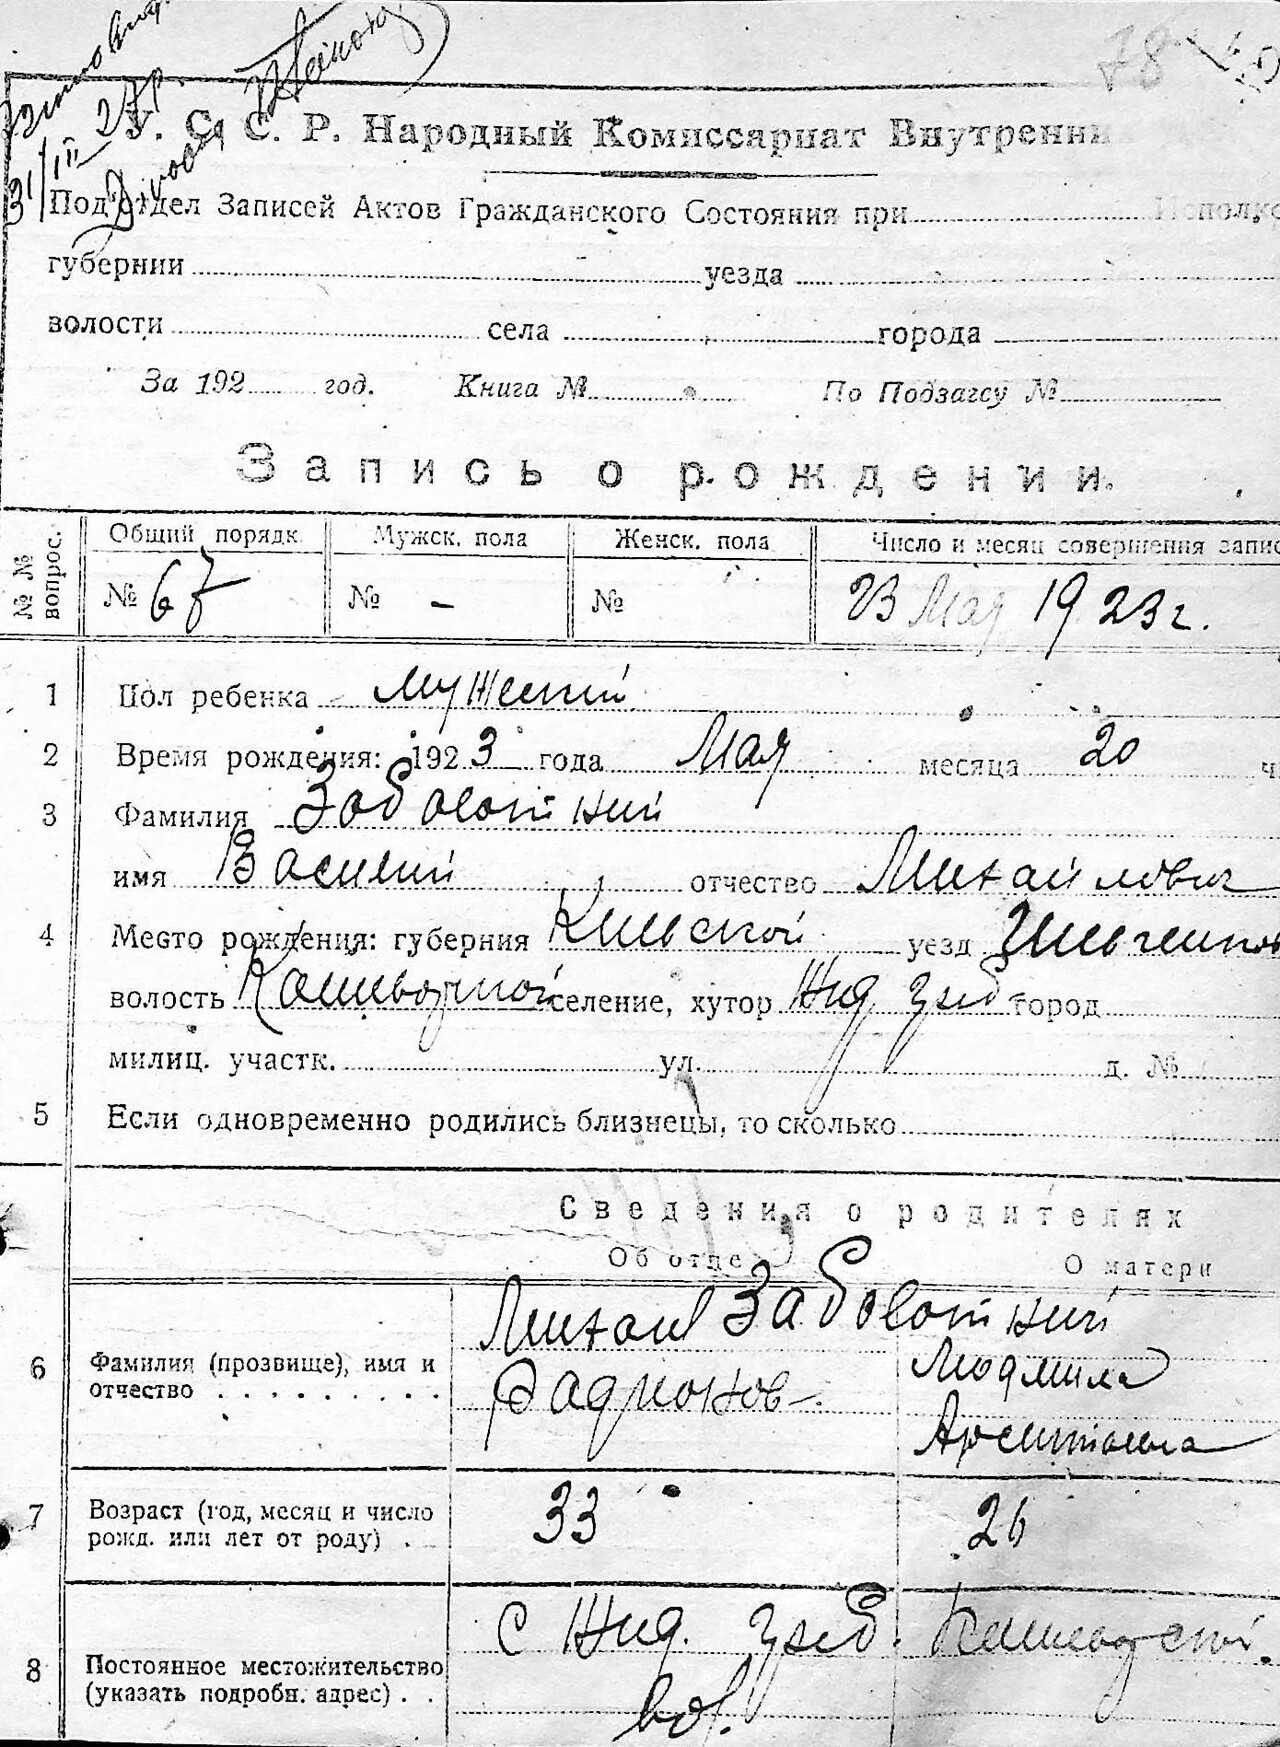 78
31/III 27 р.
У. С. С. Р. Народный Комиссариат Внутренни
Подотдел Записей Актов Гражданского Состояния при Исполко
губернии уезда
волости села города
За 192 год. Книга № По Подзагсу №
Запись о рождении.
№ № вопрос. Общий порядк. Мужск. пола Женск. пола Число и месяц совершения запис
№ 67 № - № 23 Мая 1923 г.
1 Пол ребенка мужеский
2 Время рождения: 1923 года Мая месяца 20 ч
3 Фамилия Заболотний
имя Василий отчество Михайлович
4 Место рождения: губерния Киевской уезд Шевченков
волость селение, хутор Жид Греб город
милиц. участк. ул. д. №
5 Если одновременно родились близнецы, то сколько
Сведения о родителях
Об отце О матери
Михаил Заболотний
6 Фамилия (прозвище), имя и Людмила
отчество Радионов
Арсентьевна
7 Возраст (год, месяц и число 33 26
рожд. или лет от роду)
С Жид. Греб.
8 Постоянное местожительство
(указать подробн. адрес) вол.